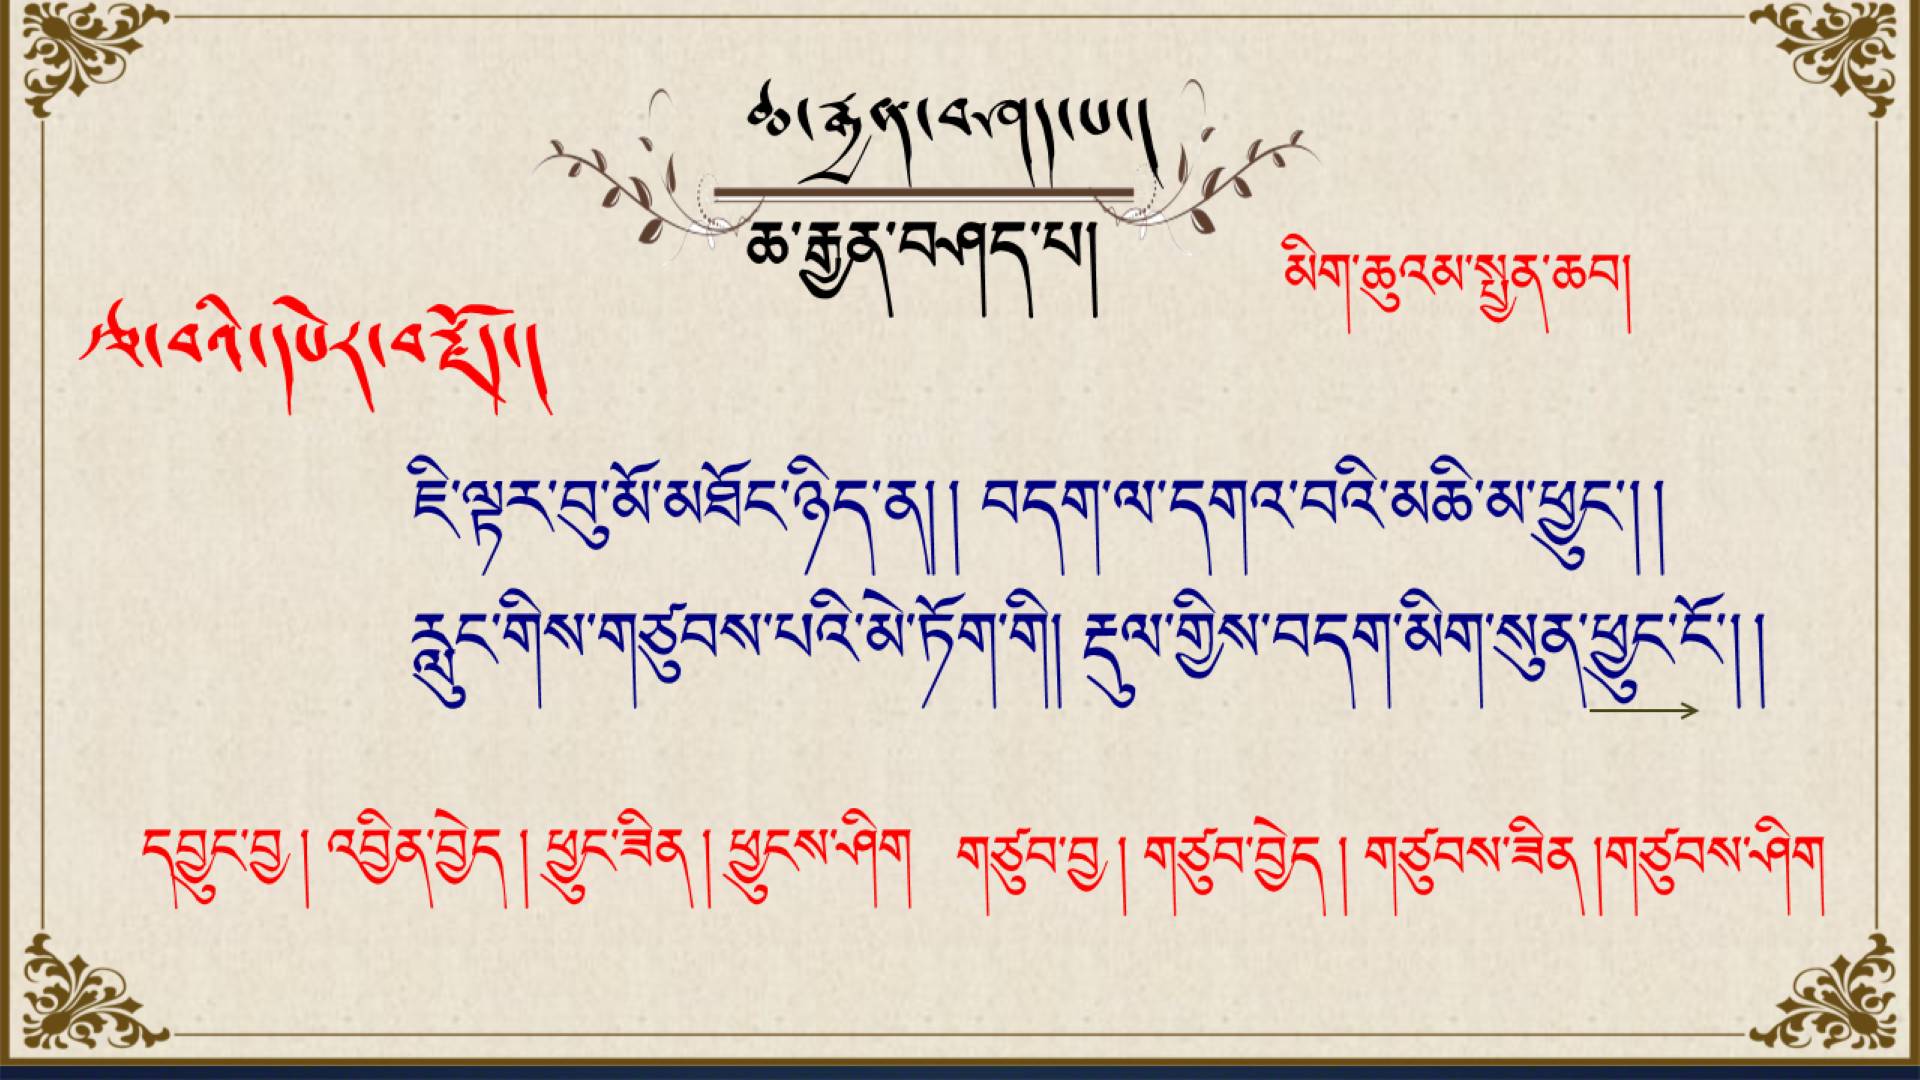 ཆ་རྒྱན་བཤད་པ།
ཆ་རྒྱན་བཤད་པ།
མིག་ཆུའམ་སྤྱན་ཆབ།
ཇི་ལྟར་བུ་མོ་མཐོང་ཉིད་ན།། བདག་ལ་དགའ་བའི་མཆི་མ་ཕྱུང་།།
རླུང་གིས་གཙུབས་པའི་མེ་ཏོག་གི། རྡུལ་གྱིས་བདག་མིག་སུན་ཕྱུང་ངོ་།།
དབྱུང་བྱ། འབྱིན་བྱེད། ཕྱུང་ཟིན། ཕྱུངས་ཤིག གཙུབ་བྱ། གཙུབ་བྱེད། གཙུབས་ཟིན།གཙུབས་ཤིག